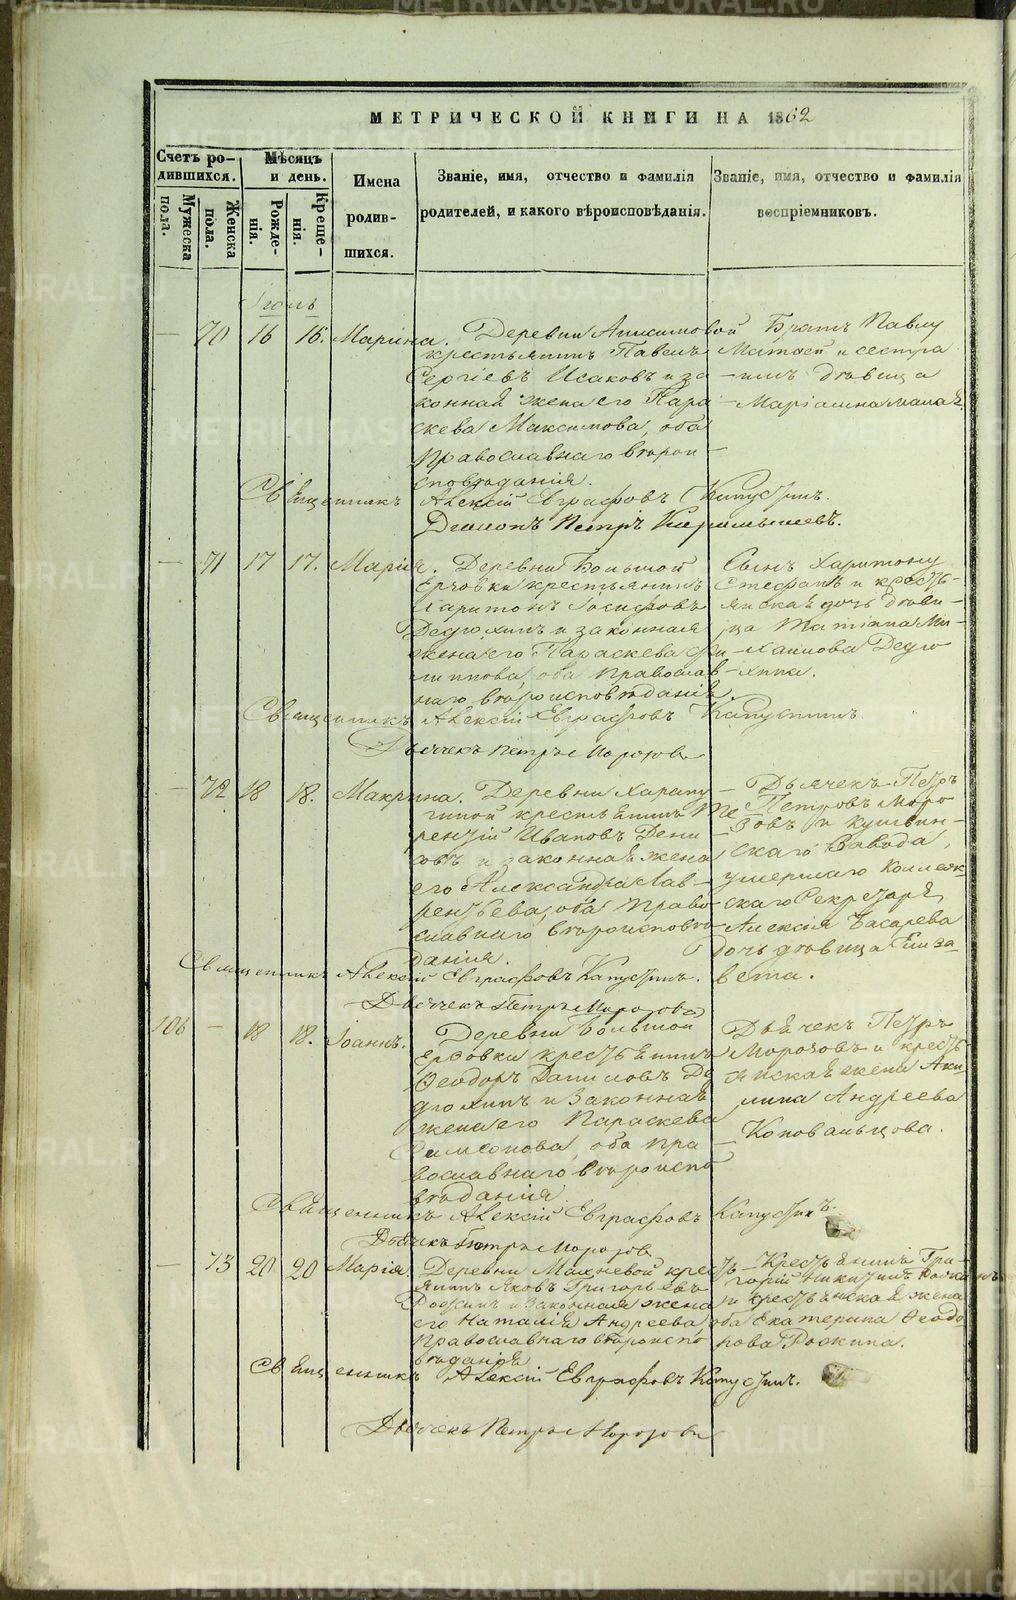 МЕТРИЧЕСКОЙ КНИГИ НА 1862
Счетъ ро-
дившихся.
Мужеска
пола.
Женска
пола.
Мѣсяцъ
и день.
Рожде-
нія.
Креще-
нія.
Имена
родив-
шихся.
Званіе, имя, отчество и фамилія
родителей, и какого вѣроисповѣданія.
Званіе, имя, отчество и фамилія
воспріемниковъ.
Іюль
— 70 16 16. Марина. Деревни Анисимовой
крестьянинъ Павелъ
Сергіевъ Исаковъ и за
конная жена его Пара
скева Максимова, оба
Православнаго вѣрои
сповѣданія.
Братъ Павлу
Матѳей и сестра
имъ дѣвица
Маріамна
Священникъ Алексій Евграфовъ Капустинъ.
Діаконъ Петръ
— 71 17 17. Марія. Деревни Большой
Ерзовки крестьянинъ
Харитонъ Іосифовъ
Дедюхинъ и законная
жена его Параскева Фи
липпова, оба православ
наго вѣроисповѣданія.
Сынъ Харитону
Стефанъ и кресть-
янская дочь дѣви-
ца Татіана Ми-
хаилова Дедю
хина.
Священникъ Алексій Евграфовъ Капустинъ.
Дьячекъ Петръ Морозовъ
— 72 18 18. Макрина. Деревни Харапу
гиной крестьянинъ Те
рентій Ивановъ Дени
совъ и законная жена
его Александра Лав-
рентьева, оба право
славнаго вѣроисповѣ
данія.
Дьячекъ Петръ
Петровъ Моро
зовъ и кушвин-
скаго завода,
умершаго Коллеж-
скаго Секретаря
Алексія Басарева
дочь дѣвица Елиза
вета.
Священникъ Алексій Евграфовъ Капустинъ.
Дьячекъ Петръ Морозовъ
106 — 18 18. Іоаннъ. Деревни Большой
Ерзовки крестьянинъ
Ѳеодоръ Даниловъ Де
дюхинъ и законная
жена его Параскева
Самсонова, оба пра
вославнаго вѣроиспо
вѣданія.
Дьячекъ Петръ
Морозовъ и кресть
янская жена Аки
лина Андреева
Коновальцова.
Священникъ Алексій Евграфовъ Капустинъ.
Дьячекъ Петръ Морозовъ
— 73 20 20 Марія. Деревни Махневой кресть
янинъ Яковъ Григорьевъ
и законная жена
его Наталія Андреева оба
православнаго вѣроиспо
вѣданія
Крестьянинъ Гри
горій Никитинъ
и крестьянская жена
Екатерина Ѳеодо
рова
Священникъ Алексій Евграфовъ Капустинъ.
Дьячекъ Петръ Морозовъ
METRIKI.GASO-URAL.RU